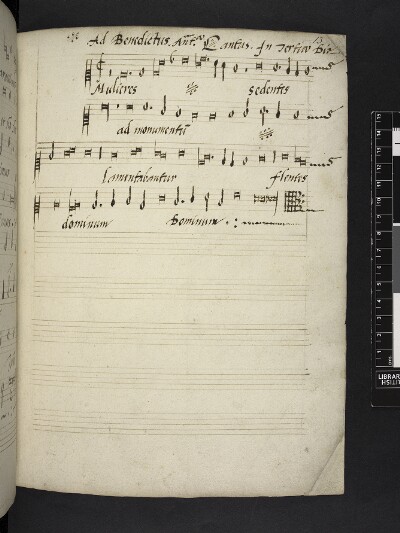 Ad Benedictus. Ant. Cantus. In Tertio Die
Mulieres sedentes
ad monumentū
lamentabantur flentes
dominum Dominum